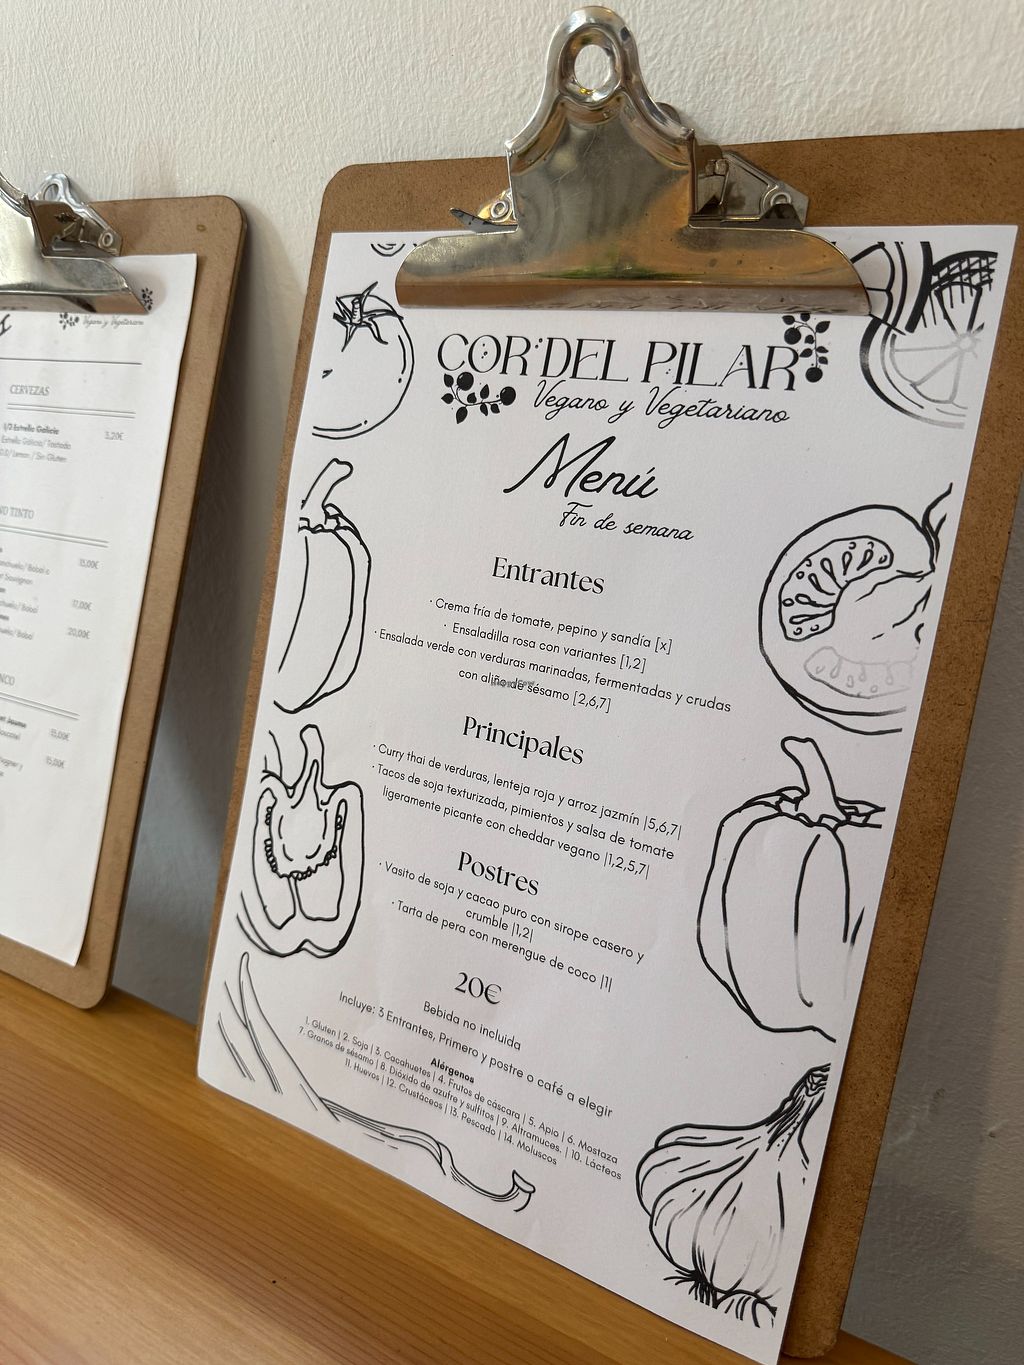 Vegano y Vegetariano
CERVEZAS
1/3 Estrella Galicia
3,20€
Estrella Galicia/ Tostada
0,0/ Lemon / Sin Gluten
TINTO
15,00€
17,00€
20,00€
15,00€
15,00€
COR DEL PILAR
Vegano y Vegetariano
Menú
Fin de semana
Entrantes
· Crema fría de tomate, pepino y sandía [x]
· Ensaladilla rosa con variantes [1,2]
· Ensalada verde con verduras marinadas, fermentadas y crudas
con aliño de sésamo [2,6,7]
Principales
· Curry thai de verduras, lenteja roja y arroz jazmín |5,6,7|
· Tacos de soja texturizada, pimientos y salsa de tomate
ligeramente picante con cheddar vegano |1,2,5,7|
Postres
· Vasito de soja y cacao puro con sirope casero y
crumble |1,2|
· Tarta de pera con merengue de coco |1|
20€
Bebida no incluida
Incluye: 3 Entrantes, Primero y postre o café a elegir
Alérgenos
1. Gluten | 2. Soja | 3. Cacahuetes | 4. Frutos de cáscara | 5. Apio | 6. Mostaza
7. Granos de sésamo | 8. Dióxido de azufre y sulfitos | 9. Altramuces. | 10. Lácteos
11. Huevos | 12. Crustáceos | 13. Pescado | 14. Moluscos